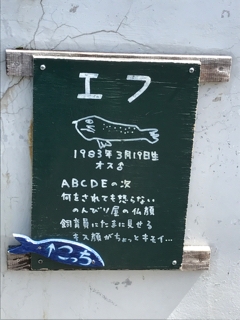 エフ
1983年3月19日生
オス♂
ABCDEの次
何をされても怒らない
のんびり屋の仏顔
飼育員にたまに見せる
キス顔がちょっとキモイ…
↑こっち